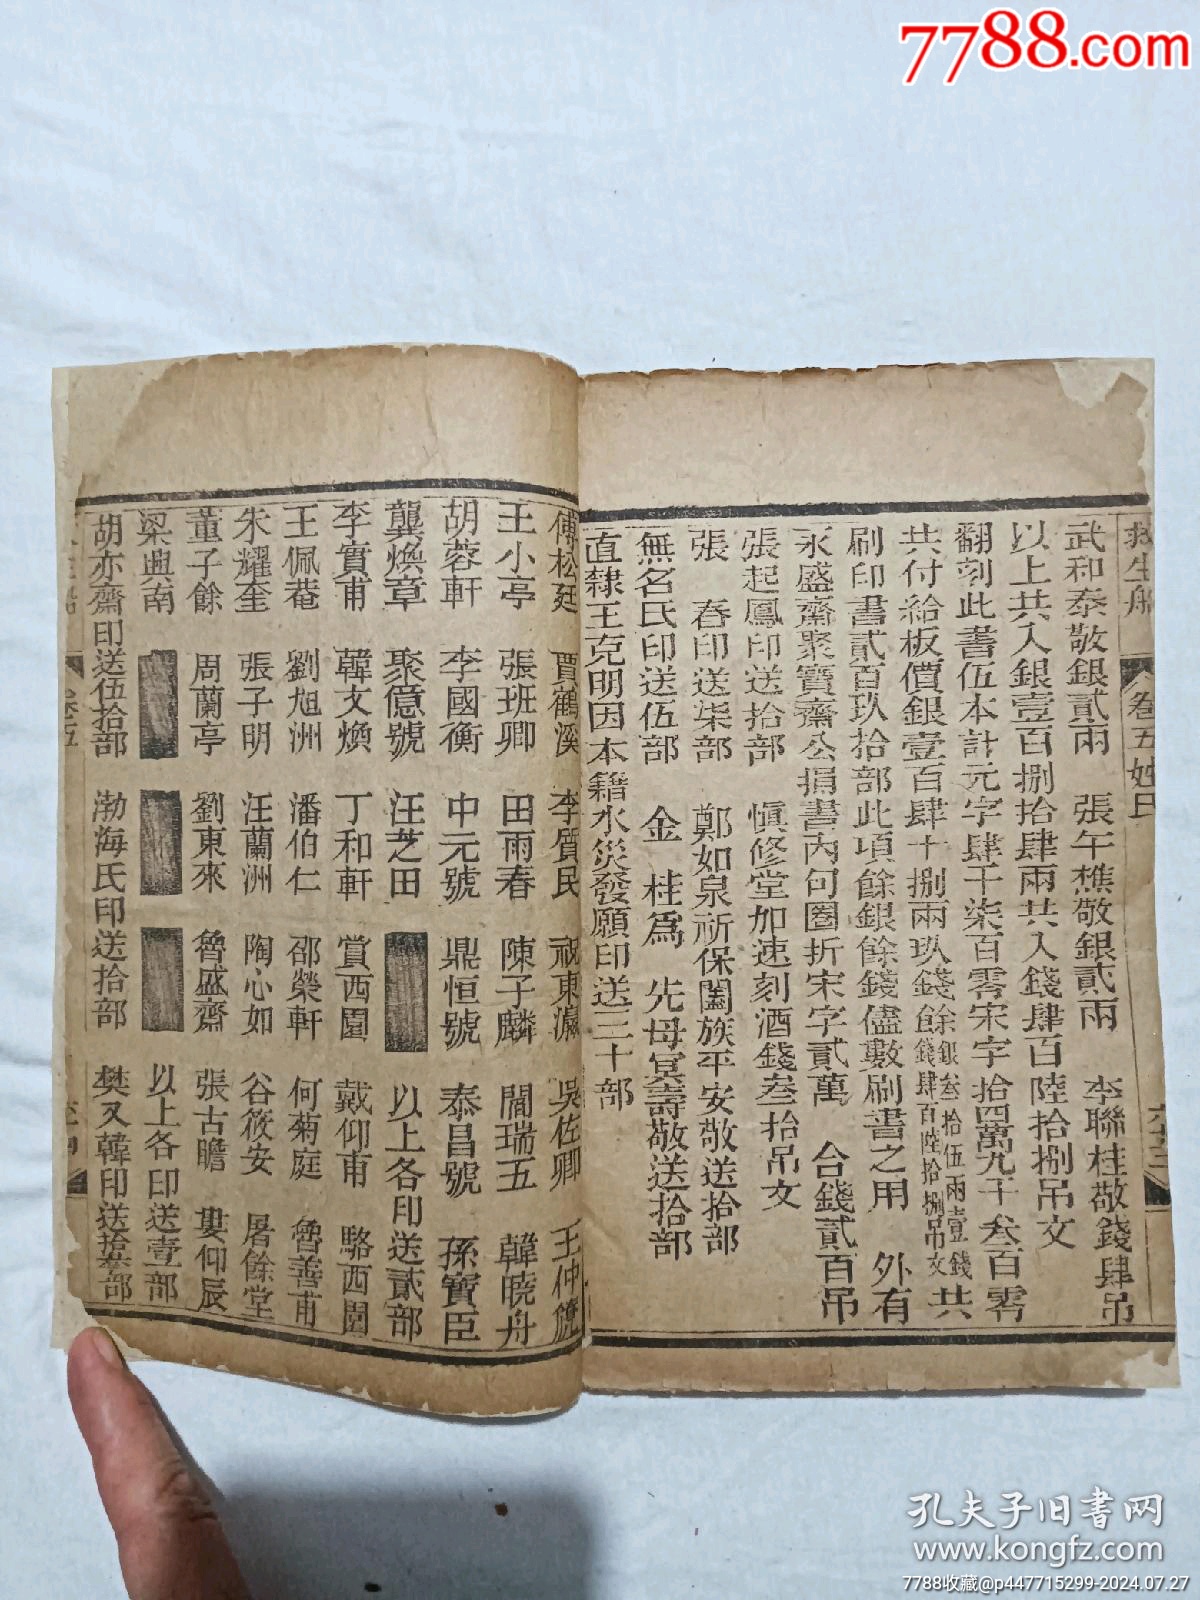 7788.com
救生船 卷五姓氏 六十三
武和泰敬銀貳兩 張午樵敬銀貳兩 李聯桂敬錢肆吊
以上共入銀壹百捌拾肆兩共入錢肆百陸拾捌吊文
翻刻此書伍本計元字肆千柒百零宋字拾四萬九千叁百零
共付給板價銀壹百肆十捌兩玖錢余銀叁拾伍兩壹錢餘錢肆百陸拾捌吊文共
刷印書貳百玖拾部此項餘銀餘錢儘數刷書之用 外有
永盛齋聚寶齋公捐書內句圈折宋字貳萬 合錢貳百吊
張起鳳印送拾部 慎修堂加速刻酒錢叁拾吊文
張 春印送柒部 鄭如泉祈保闔族平安敬送拾部
無名氏印送伍部 金 桂為 先母冥壽敬送拾部
直隸王克明因本籍水災發願印送三十部
傅松廷 賈鶴溪 李質民 祝東瀛 吳佐卿 王仲
王小亭 張班卿 田雨春 陳子麟 閻瑞五 韓曉舟
胡蓉軒 李國衡 中元號 鼎恒號 泰昌號 孫寶臣
龔煥章 聚億號 汪芝田 以上各印送貳部
李實甫 韓文煥 丁和軒 賞西園 戴仰甫 駱西園
王佩菴 劉旭洲 潘伯仁 邵榮軒 何菊庭 魯善甫
朱耀奎 張子明 汪蘭洲 陶心如 谷筱安 屠餘堂
董子餘 周蘭亭 劉東來 魯盛齋 張古瞻 婁仰辰
梁興南 以上各印送壹部
胡亦齋印送伍拾部 渤海氏印送拾部 樊又韓印送拾部
卷五
孔夫子旧书网
www.kongfz.com
7788收藏@p447715299-2024.07.27